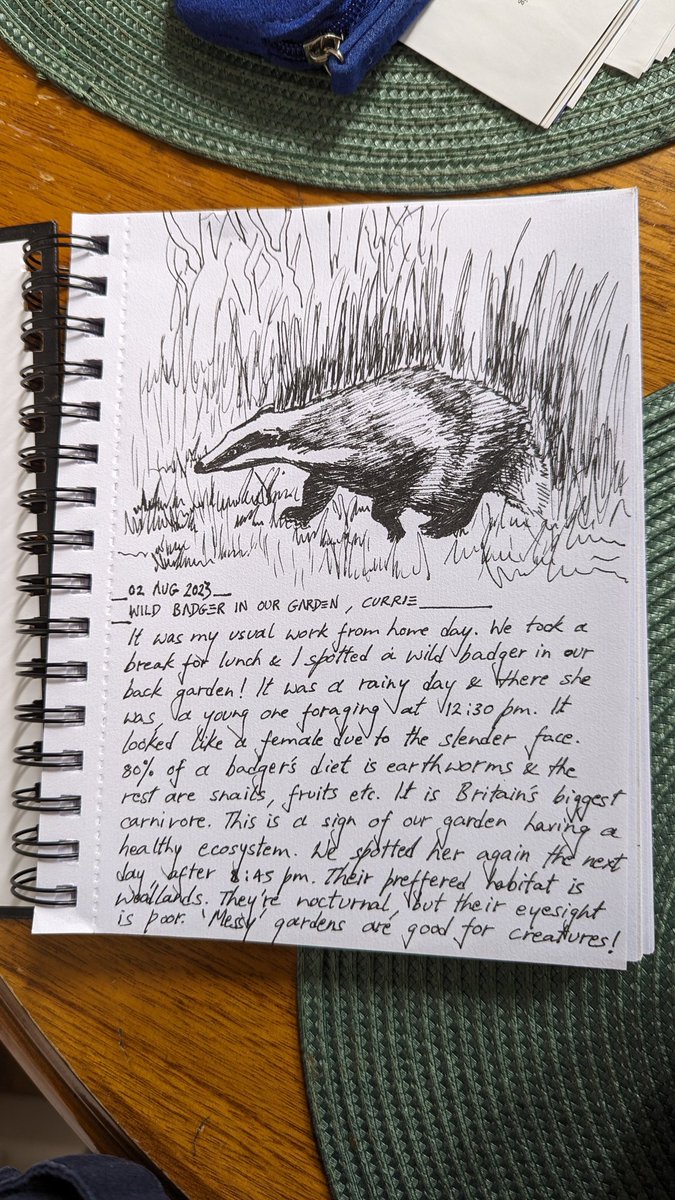 02 AUG 2023
WILD BADGER IN OUR GARDEN, CURRIE
It was my usual work from home day. We took a
break for lunch & I spotted a wild badger in our
back garden! It was a rainy day & there she
was, a young one foraging at 12:30 pm. It
looked like a female due to the slender face.
80% of a badger's diet is earthworms & the
rest are snails, fruits etc. It is Britain's biggest
carnivore. This is a sign of our garden having a
healthy ecosystem. We spotted her again the next
day, after 8:45 pm. Their preffered habitat is
woodlands. They're nocturnal, but their eyesight
is poor. 'Messy' gardens are good for creatures!